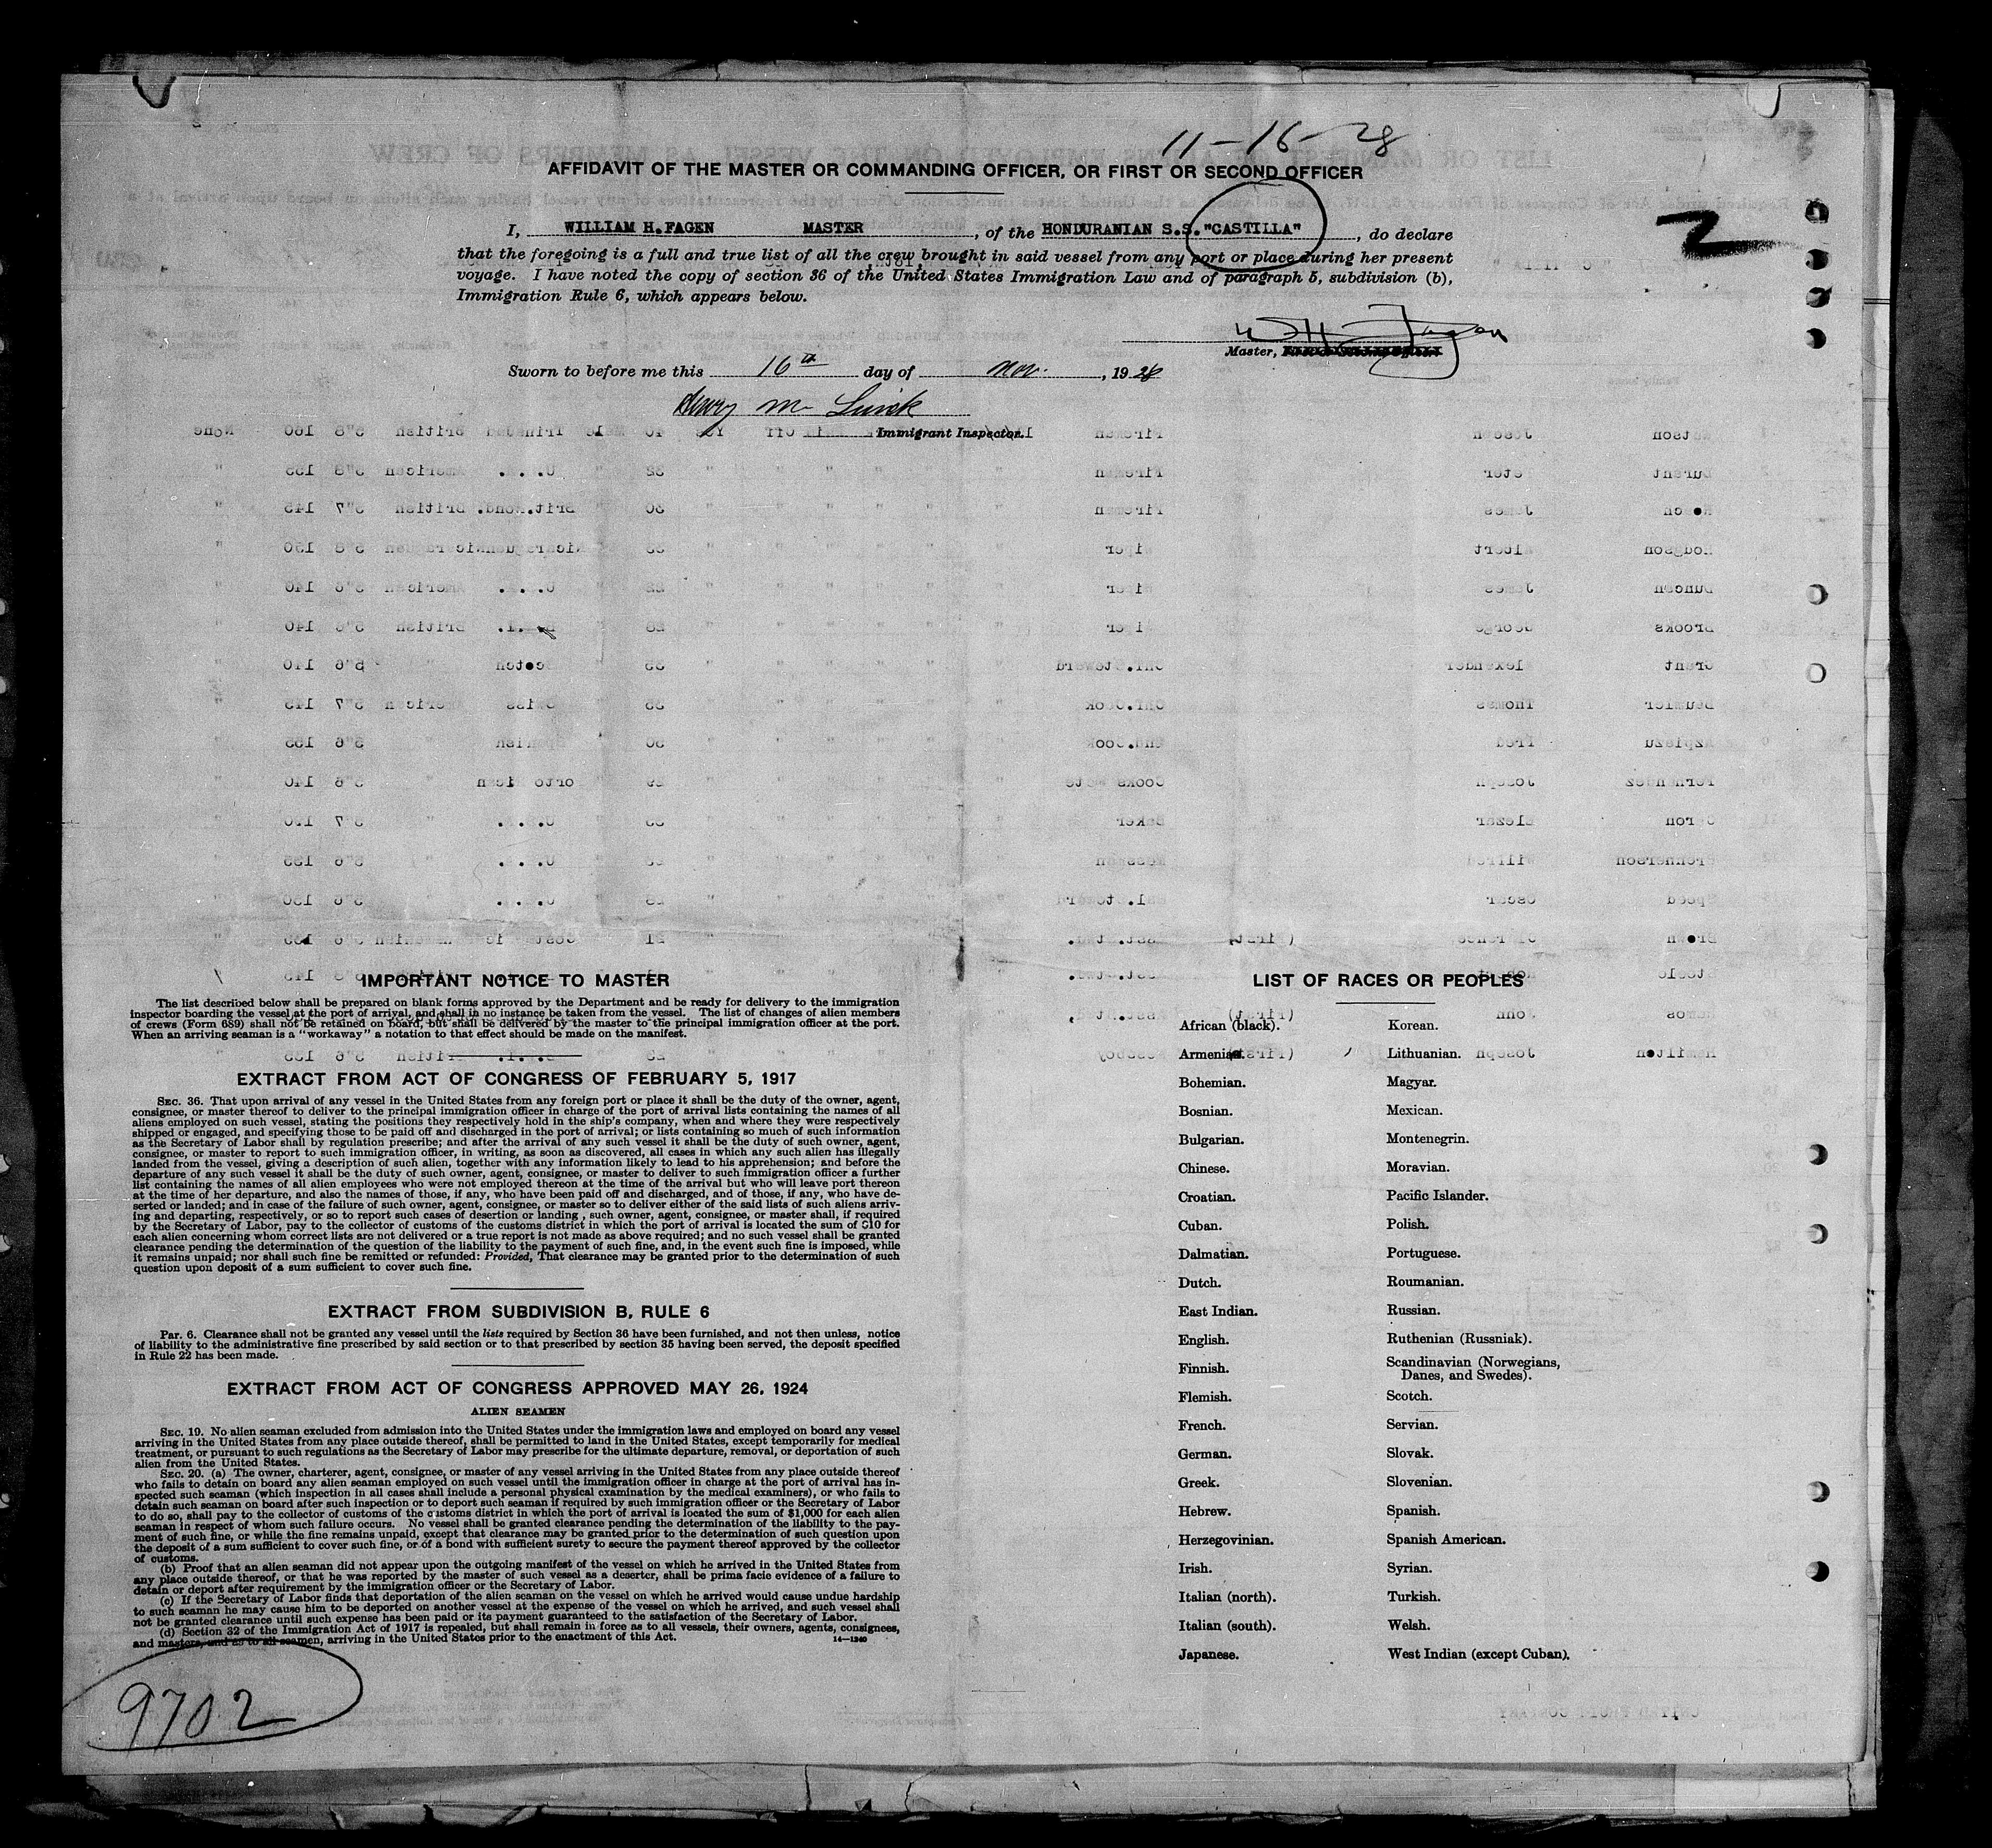 11-16-28
AFFIDAVIT OF THE MASTER OR COMMANDING OFFICER, OR FIRST OR SECOND OFFICER
2
I, WILLIAM H. FAGEN MASTER, of the HONDURANIAN S.S. "CASTILLA", do declare
that the foregoing is a full and true list of all the crew brought in said vessel from any port or place during her present
voyage. I have noted the copy of section 36 of the United States Immigration Law and of paragraph 5, subdivision (b),
Immigration Rule 6, which appears below.
W H Fagen
Master,
Sworn to before me this 16th day of Nov. , 1928
Immigrant Inspector.
IMPORTANT NOTICE TO MASTER
The list described below shall be prepared on blank forms approved by the Department and be ready for delivery to the immigration
inspector boarding the vessel at the port of arrival, and shall in no instance be taken from the vessel. The list of changes of alien members
of crews (Form 689) shall not be retained on board, but shall be delivered by the master to the principal immigration officer at the port.
When an arriving seaman is a "workaway" a notation to that effect should be made on the manifest.
EXTRACT FROM ACT OF CONGRESS OF FEBRUARY 5, 1917
SEC. 36. That upon arrival of any vessel in the United States from any foreign port or place it shall be the duty of the owner, agent,
consignee, or master thereof to deliver to the principal immigration officer in charge of the port of arrival lists containing the names of all
aliens employed on such vessel, stating the positions they respectively hold in the ship's company, when and where they were respectively
shipped or engaged, and specifying those to be paid off and discharged in the port of arrival; or lists containing so much of such information
as the Secretary of Labor shall by regulation prescribe; and after the arrival of any such vessel it shall be the duty of such owner, agent,
consignee, or master to report to such immigration officer, in writing, as soon as discovered, all cases in which any such alien has illegally
landed from the vessel, giving a description of such alien, together with any information likely to lead to his apprehension; and before the
departure of any such vessel it shall be the duty of such owner, agent, consignee, or master to deliver to such immigration officer a further
list containing the names of all alien employees who were not employed thereon at the time of the arrival but who will leave port thereon
at the time of her departure, and also the names of those, if any, who have been paid off and discharged, and of those, if any, who have de-
serted or landed; and in case of the failure of such owner, agent, consignee, or master so to deliver either of the said lists of such aliens arriv-
ing and departing, respectively, or so to report such cases of desertion or landing, such owner, agent, consignee, or master shall, if required
by the Secretary of Labor, pay to the collector of customs of the customs district in which the port of arrival is located the sum of $10 for
each alien concerning whom correct lists are not delivered or a true report is not made as above required; and no such vessel shall be granted
clearance pending the determination of the question of the liability to the payment of such fine, and, in the event such fine is imposed, while
it remains unpaid; nor shall such fine be remitted or refunded: Provided, That clearance may be granted prior to the determination of such
question upon deposit of a sum sufficient to cover such fine.
EXTRACT FROM SUBDIVISION B, RULE 6
Par. 6. Clearance shall not be granted any vessel until the lists required by Section 36 have been furnished, and not then unless, notice
of liability to the administrative fine prescribed by said section or to that prescribed by section 35 having been served, the deposit specified
in Rule 22 has been made.
EXTRACT FROM ACT OF CONGRESS APPROVED MAY 26, 1924
ALIEN SEAMEN
SEC. 19. No alien seaman excluded from admission into the United States under the immigration laws and employed on board any vessel
arriving in the United States from any place outside thereof, shall be permitted to land in the United States, except temporarily for medical
treatment, or pursuant to such regulations as the Secretary of Labor may prescribe for the ultimate departure, removal, or deportation of such
alien from the United States.
SEC. 20. (a) The owner, charterer, agent, consignee, or master of any vessel arriving in the United States from any place outside thereof
who fails to detain on board any alien seaman employed on such vessel until the immigration officer in charge at the port of arrival has in-
spected such seaman (which inspection in all cases shall include a personal physical examination by the medical examiners), or who fails to
detain such seaman on board after such inspection or to deport such seaman if required by such immigration officer or the Secretary of Labor
to do so, shall pay to the collector of customs of the customs district in which the port of arrival is located the sum of $1,000 for each alien
seaman in respect of whom such failure occurs. No vessel shall be granted clearance pending the determination of the liability to the pay-
ment of such fine, or while the fine remains unpaid, except that clearance may be granted prior to the determination of such question upon
the deposit of a sum sufficient to cover such fine, or of a bond with sufficient surety to secure the payment thereof approved by the collector
of customs.
(b) Proof that an alien seaman did not appear upon the outgoing manifest of the vessel on which he arrived in the United States from
any place outside thereof, or that he was reported by the master of such vessel as a deserter, shall be prima facie evidence of a failure to
detain or deport after requirement by the immigration officer or the Secretary of Labor.
(c) If the Secretary of Labor finds that deportation of the alien seaman on the vessel on which he arrived would cause undue hardship
to such seaman he may cause him to be deported on another vessel at the expense of the vessel on which he arrived, and such vessel shall
not be granted clearance until such expense has been paid or its payment guaranteed to the satisfaction of the Secretary of Labor.
(d) Section 32 of the Immigration Act of 1917 is repealed, but shall remain in force as to all vessels, their owners, agents, consignees,
and masters, and as to all seamen, arriving in the United States prior to the enactment of this Act. 14—1240
9702
LIST OF RACES OR PEOPLES
African (black). Korean.
Armenian. Lithuanian.
Bohemian. Magyar.
Bosnian. Mexican.
Bulgarian. Montenegrin.
Chinese. Moravian.
Croatian. Pacific Islander.
Cuban. Polish.
Dalmatian. Portuguese.
Dutch. Roumanian.
East Indian. Russian.
English. Ruthenian (Russniak).
Finnish. Scandinavian (Norwegians,
Danes, and Swedes).
Flemish. Scotch.
French. Servian.
German. Slovak.
Greek. Slovenian.
Hebrew. Spanish.
Herzegovinian. Spanish American.
Irish. Syrian.
Italian (north). Turkish.
Italian (south). Welsh.
Japanese. West Indian (except Cuban).